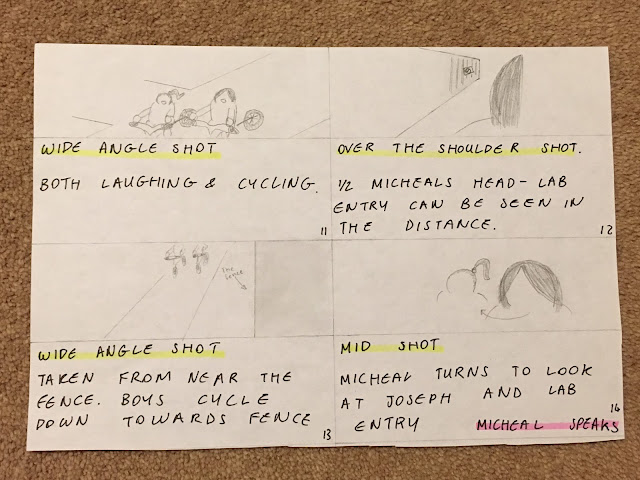 WIDE ANGLE SHOT
BOTH LAUGHING & CYCLING.
11
OVER THE SHOULDER SHOT.
1/2 MICHEALS HEAD - LAB
ENTRY CAN BE SEEN IN
THE DISTANCE.
12
the fence
WIDE ANGLE SHOT
TAKEN FROM NEAR THE
FENCE. BOYS CYCLE
DOWN TOWARDS FENCE
13
MID SHOT
MICHEAL TURNS TO LOOK
AT JOSEPH AND LAB
ENTRY MICHEAL SPEAKS
14